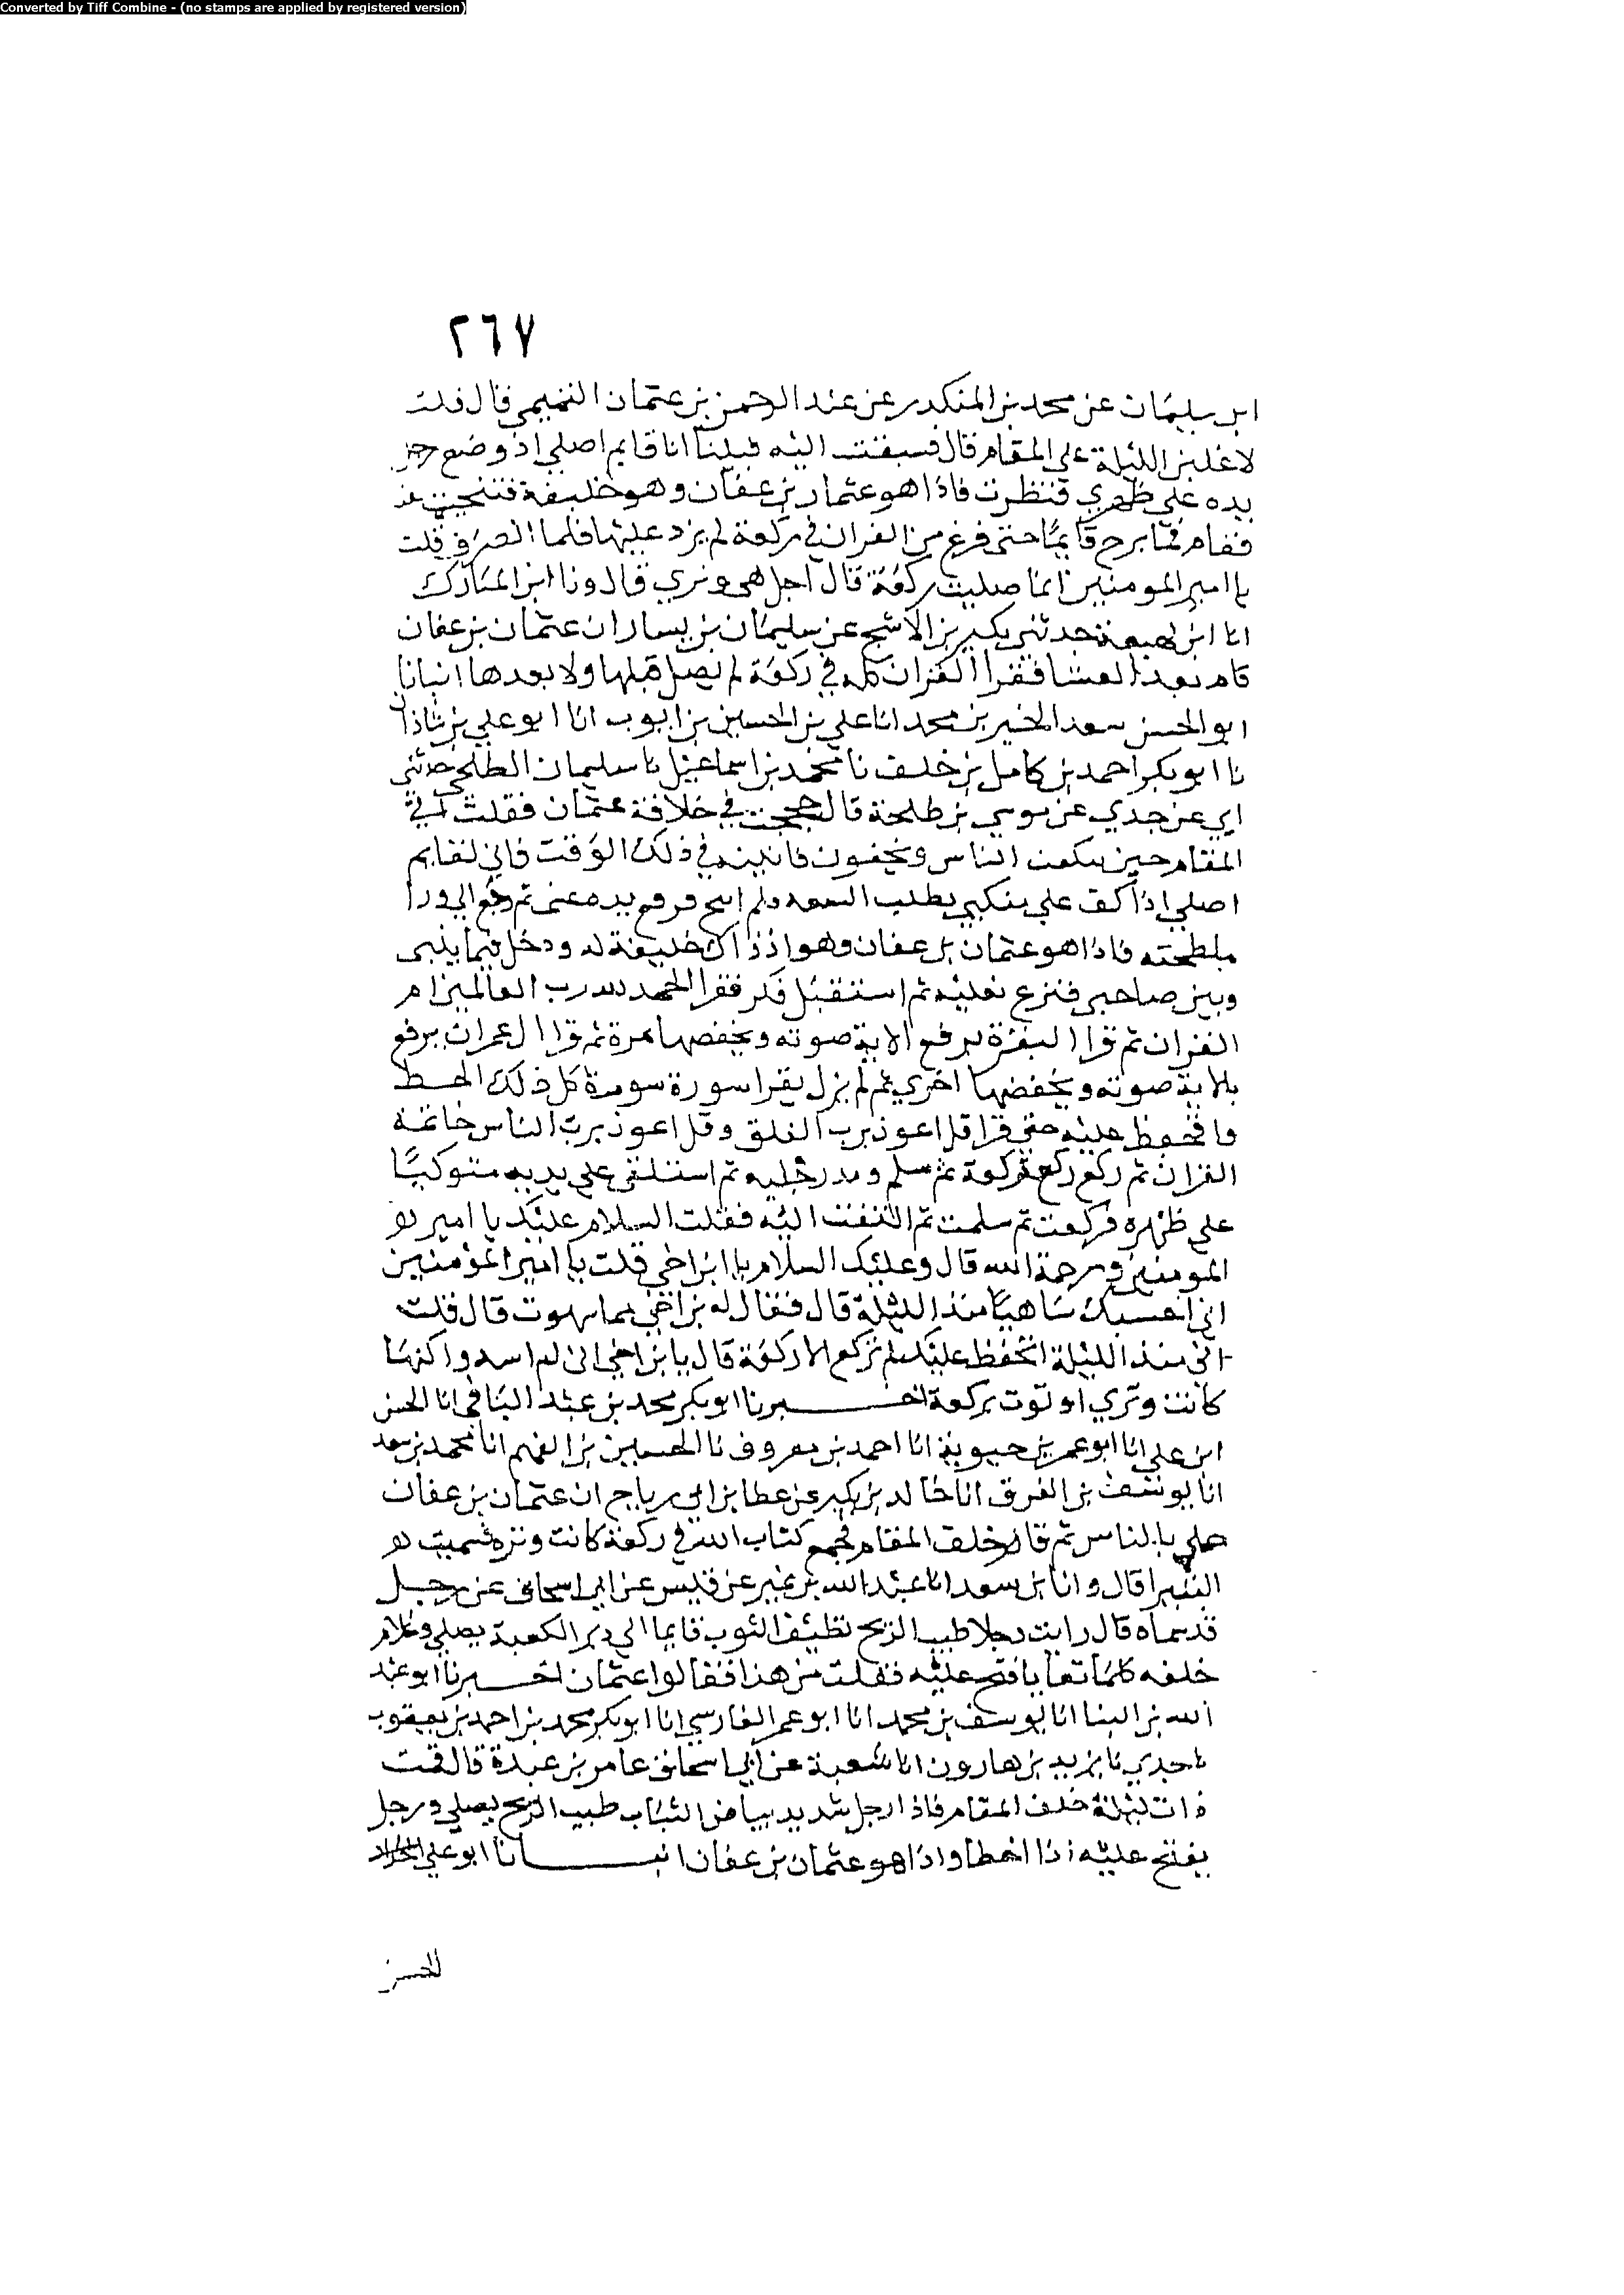 Converted by Tiff Combine - (no stamps are applied by registered version)
٢٦٧
ابن سليمان عن محمد بن المنكدر عن عبد الرحمن بن عثمان التيمي قال قلت
لاغلبن الليلة على المقام قال فسبقت اليه فبينا انا قايم اصلي اذ وضع رجل
يده على ظهري فنظرت فاذا هو عثمان بن عفان وهو خليفة فتنحيت عنه
فقام فما برح قايمًا حتى فرغ من القران في ركعة لم يزد عليها فلما انصرف قلت
يا امير المومنين انما صليت ركعة قال اجل هي وتري قال ونا ابن المبارك
انا ابن لهيعة حدثني بكير بن الاشج عن سليمان بن يسار ان عثمان بن عفان
قام بعد العشا فقرا القران كله في ركعة لم يصل قبلها ولا بعدها انبانا
ابو الحسن سعد الخير بن محمد انا علي بن الحسين بن ايوب انا ابو علي بن شاذان
نا ابو بكر احمد بن كامل بن خلف نا محمد بن اسماعيل نا سليمان الطلحي حدثني
ابي عن جدي عن موسى بن طلحة قال حججت في خلافة عثمان فقلت اتي
المقام حين سكت الناس ويخفون فاتيته في ذلك الوقت فاني لقايم
اصلي اذا كف على منكبي يطلب السعه ولم ابرح فرفع يده عني ثم رجع الى ورا
ملطحته فاذا هو عثمان بن عفان وهو اذ ذاك خليفة له ودخل فيما بيني
وبين صاحبي فنزع نعليه ثم استقبل فكبر فقرا الحمد لله رب العالمين ام
القران ثم قرا البقرة يرفع الاية صوته ويخفضها مرة ثم قرا ال عمران يرفع
بلاية صوته ويخفضها اخرى ثم لم يزل يقرا سورة سورة كل ذلك الحط
واتحفظ عليه حتى قرا قل اعوذ برب الفلق وقل اعوذ برب الناس خاتمة
القران ثم ركع ركع ركعة ثم سلم ومد رجليه ثم استلقى على يديه متوكيًا
على ظهره فركعت ثم سلمت ثم التفت اليه فقلت السلام عليك يا امير
المومنين ورحمة الله قال وعليك السلام يا ابن اخي قلت يا امير المؤمنين
اني احسبك ساهيًا منذ الليلة قال فقال له بن اخي بما سهوت قال قلت
اني منذ الليلة اتحفظ عليك لم تركع الا ركعة قال يا بن اخي اني لم اسه ولكنها
كانت وتري اوتوت بركعة اخبرنا ابو بكر محمد بن عبد الباقي انا الحسن
ابن علي انا ابو عمر بن حيوية انا احمد بن معروف نا الحسين بن الفهم انا محمد بن سعد
انا يوسف بن الغرق انا خالد بن بكير عن عطا بن ابي رباح ان عثمان بن عفان
صلى بالناس ثم قام خلف المقام فجمع كتاب الله في ركعة كانت وتره فسميت
البتيرا قال وانا بن سعد انا عبد الله بن نمير عن قيس عن ابي اسحاق عن رجل
قد سماه قال رايت رجلا طيب الريح نظيف الثوب قايما الى دبر الكعبة يصلي وغلام
خلفه كلما تعايا فتح عليه فقلت من هذا فقالوا عثمان اخبرنا ابو عبد
الله بن البنا انا يوسف بن محمد انا ابو عمر الفارسي انا ابو بكر محمد بن احمد بن يعقوب
نا جدي نا يزيد بن هارون انا شعبة عن ابي اسحاق عامر بن عبدة قال قمت
ذات ليلة خلف المقام فاذا رجل شديد بياض الثياب طيب الريح يصلي ورجل
يفتح عليه اذا اخطا واذا هو عثمان بن عفان انبانا ابو علي الحداد
الحسن